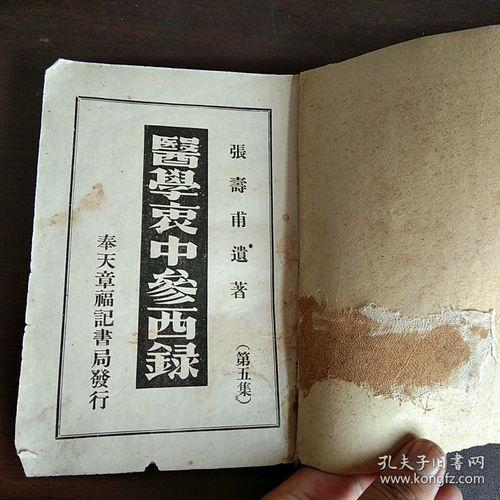 張壽甫遺著
(第五集)
醫學衷中參西録
奉天章福記書局發行
孔夫子旧书网
www.kongfz.com